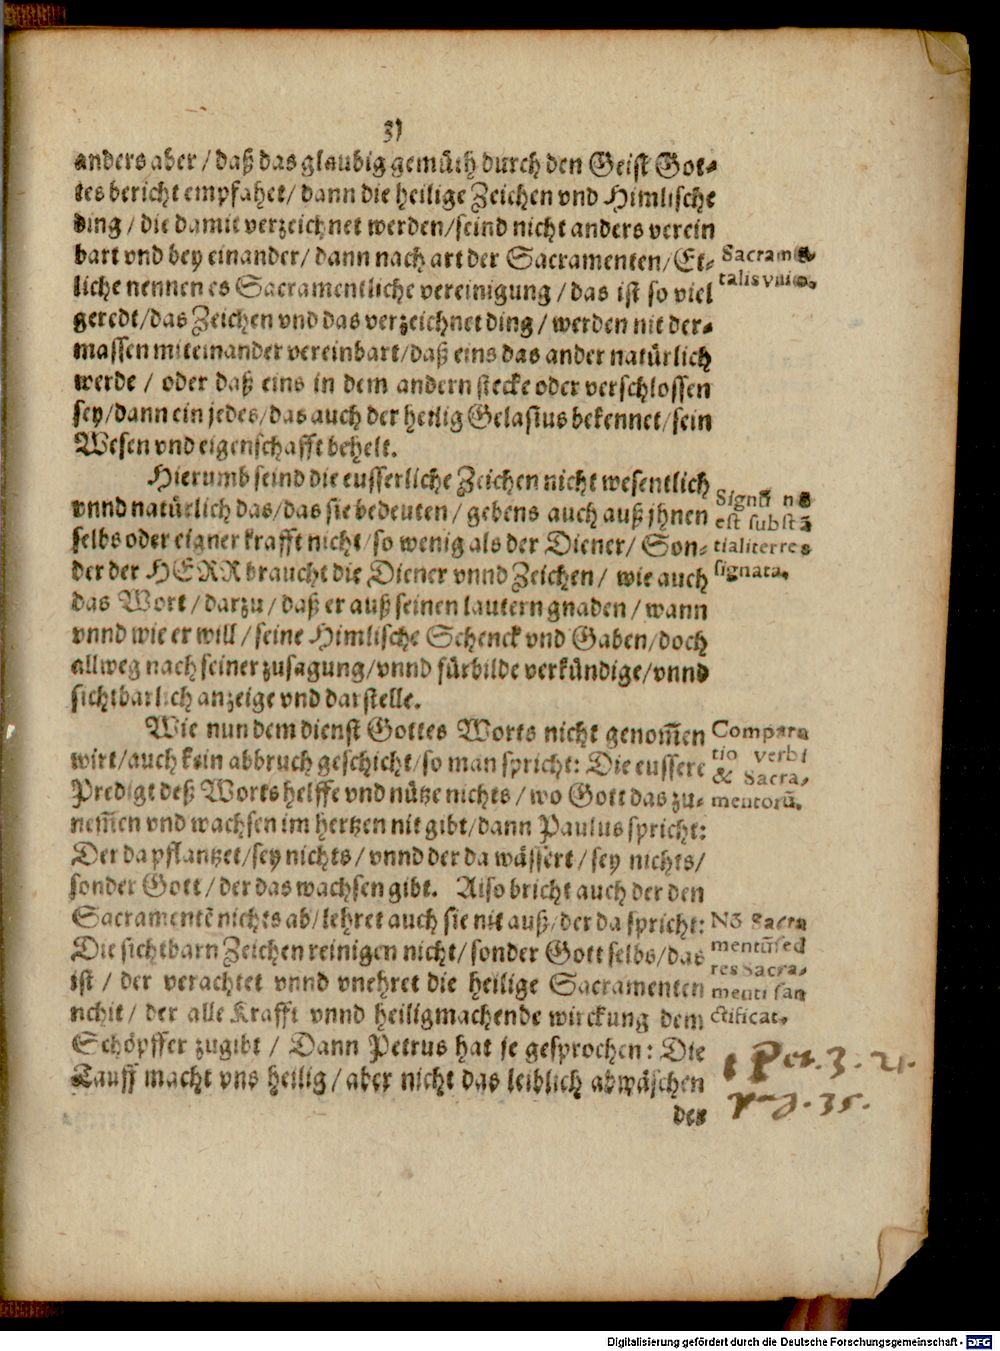 31
anders aber / daß das glaubig gemüth durch den Geist Got-
tes bericht empfahet / dann die heilige Zeichen vnd Himlische
ding / die damit verzeichnet werden / seind nicht anders verein
bart vnd bey einander / dann nach art der Sacramenten / Et-
liche nennen es Sacramentliche vereinigung / das ist so viel
geredt / das Zeichen vnd das verzeichnet ding / werden nit der-
massen miteinander vereinbart / daß eins das ander natürlich
werde / oder daß eins in dem andern stecke oder verschlossen
sey / dann ein jedes / das auch der heilig Gelasius bekennet / sein
Wesen vnd eigenschafft behelt.
Sacramē-
talis vnio.
Hierumb seind die eusserliche Zeichen nicht wesentlich
vnnd natürlich das / das sie bedeuten / gebens auch auß jhnen
selbs oder eigner krafft nicht / so wenig als der Diener / Son-
der der HERR braucht die Diener vnnd Zeichen / wie auch
das Wort / darzu / daß er auß seinen lautern gnaden / wann
vnnd wie er will / seine Himlische Schenck vnd Gaben / doch
allweg nach seiner zusagung / vnnd fürbilde verkündige / vnnd
sichtbarlich anzeige vnd darstelle.
Signū nō
est substā
tialiter res
signata.
Wie nun dem dienst Gottes Worts nicht genom̄en
wirt / auch kein abbruch geschicht / so man spricht: Die eussere
Predigt deß Worts helffe vnd nütze nichts / wo Gott das zu-
nem̄en vnd wachsen im hertzen nit gibt / dann Paulus spricht:
Der da pflantzet / sey nichts / vnnd der da wässert / sey nichts /
sonder Gott / der das wachsen gibt. Also bricht auch der den
Sacramentē nichts ab / lehret auch sie nit auß / der da spricht:
Die sichtbarn Zeichen reinigen nicht / sonder Gott selbs / das
ist / der verachtet vnnd vnehret die heilige Sacramenten
nchit / der alle Krafft vnnd heiligmachende wirckung dem
Schöpffer zugibt / Dann Petrus hat je gesprochen: Die
Tauff macht vns heilig / aber nicht das leiblich abwäschen
der
Compara
tio verbi
& Sacra-
mentorū.
Nō Sacra
mentū sed
res Sacra-
menti san
ctificat.
1 Pet. 3. 21.
pag. 35.
Digitalisierung gefördert durch die Deutsche Forschungsgemeinschaft - DFG